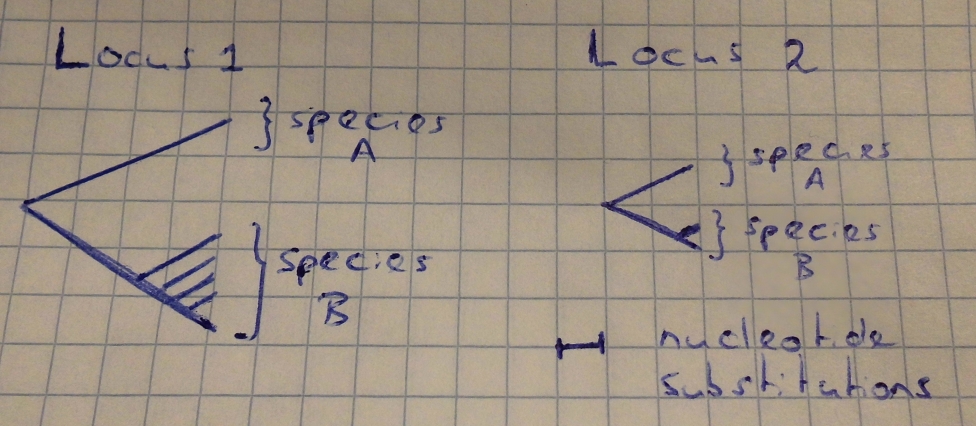 Locus 1
} species
A
} species
B
Locus 2
} species
A
} species
B
nucleotide
substitutions